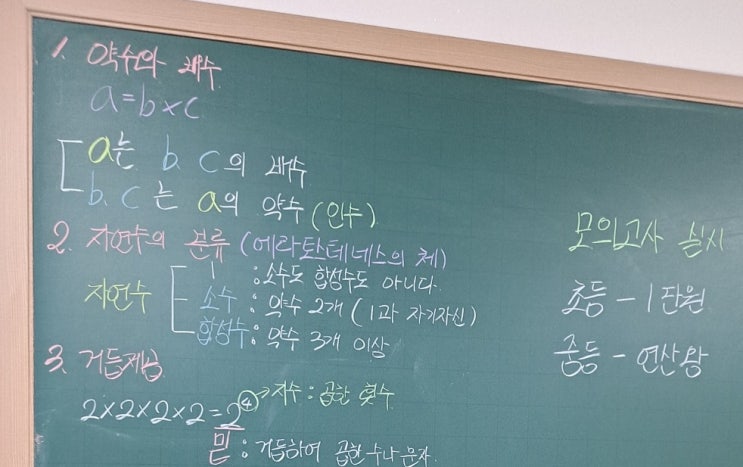 1. 약수와 배수
a=b×c
a는 b. c의 배수
b. c는 a의 약수 (인수)
2. 자연수의 분류 (에라토스테네스의 체)
자연수
1 : 소수도 합성수도 아니다.
소수 : 약수 2개 (1과 자기자신)
합성수 : 약수 3개 이상
3. 거듭제곱
2×2×2×2=2④→지수 : 곱한 횟수
밑 : 거듭하여 곱한 수나 문자.
모의고사 실시
초등 - 1단원
중등 - 연산왕